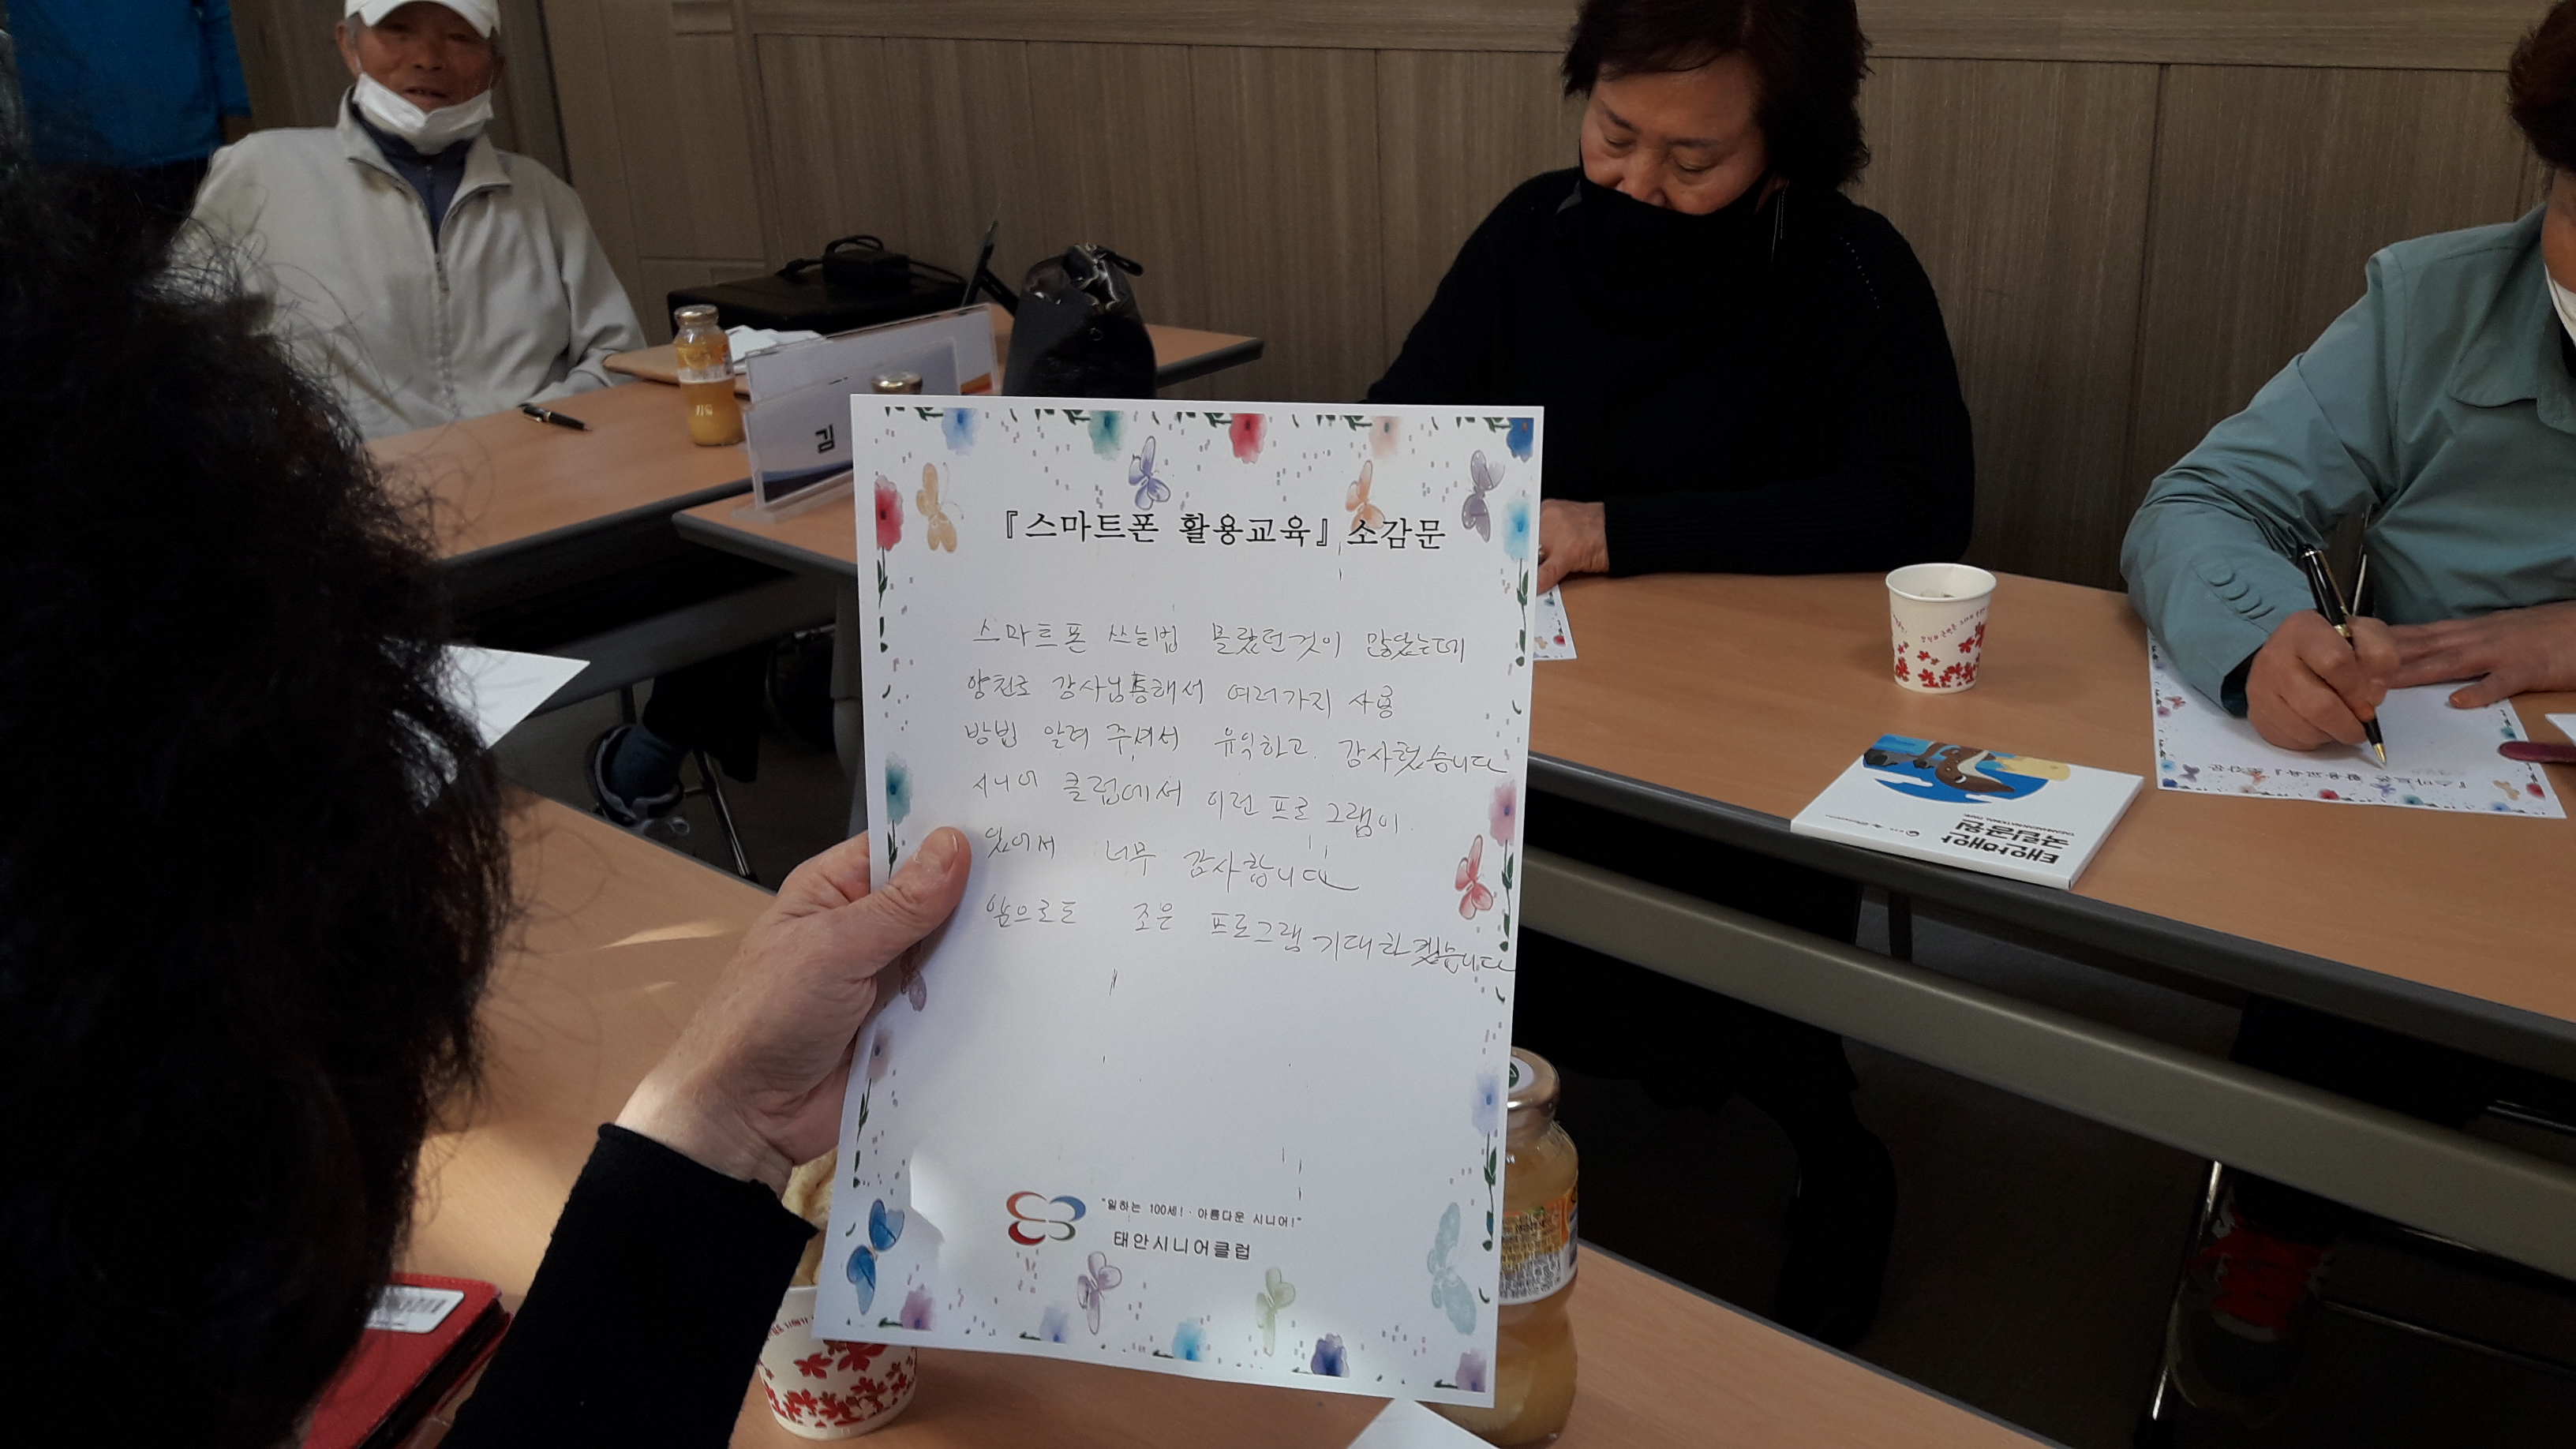 김
『스마트폰 활용교육』 소감문
스마트폰 쓰는법 몰랐던것이 많았는데
양진로 강사님통해서 여러가지 사용
방법 알려 주셔서 유익하고. 감사헜습니다
시니어 클럽에서 이런 프로그램이.
있어서 너무 감사합니다
앞으로도 조은 프로그램 기대하겠습니다
"일하는 100세! · 아름다운 시니어!"
태안시니어클럽
태안해안
국립공원
『스마트폰 활용교육』 소감문